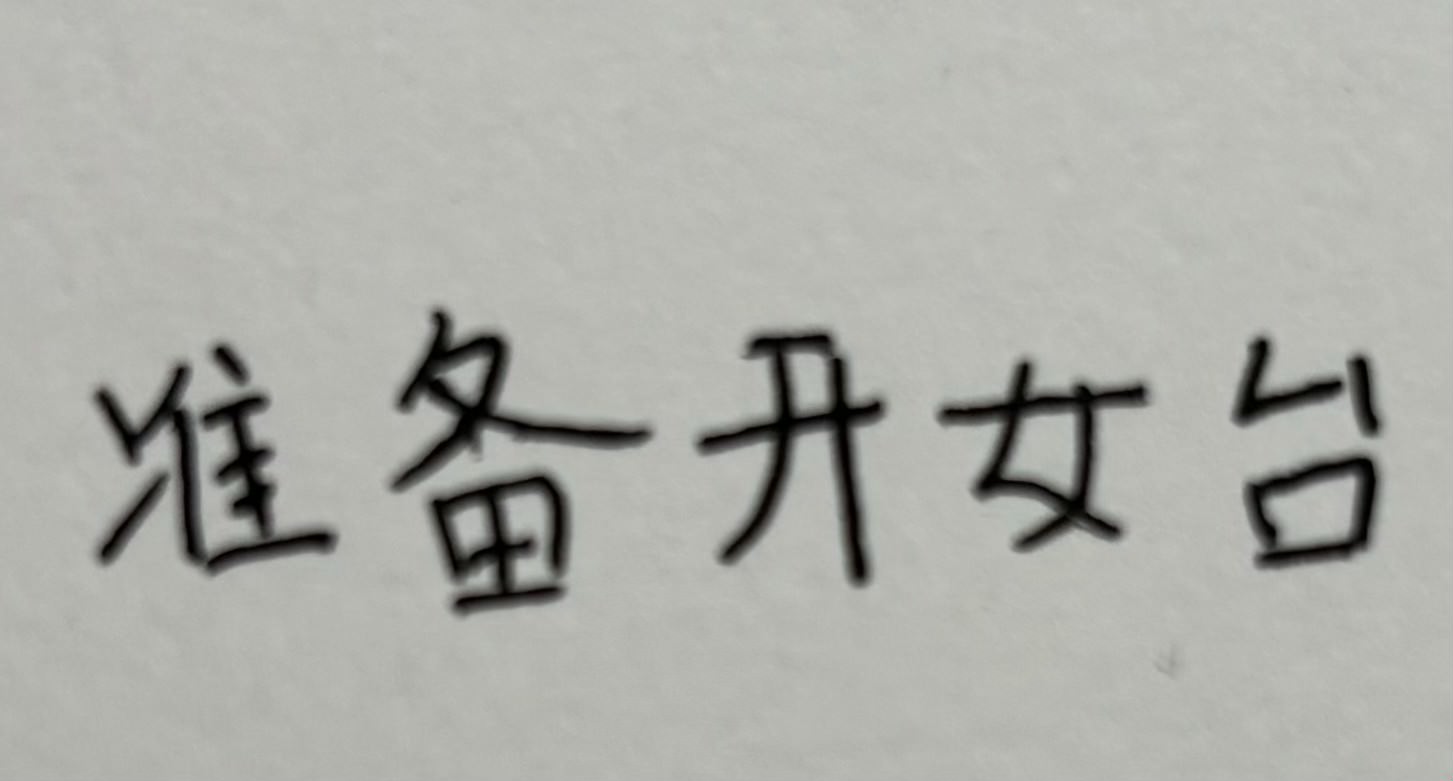 准备开女台